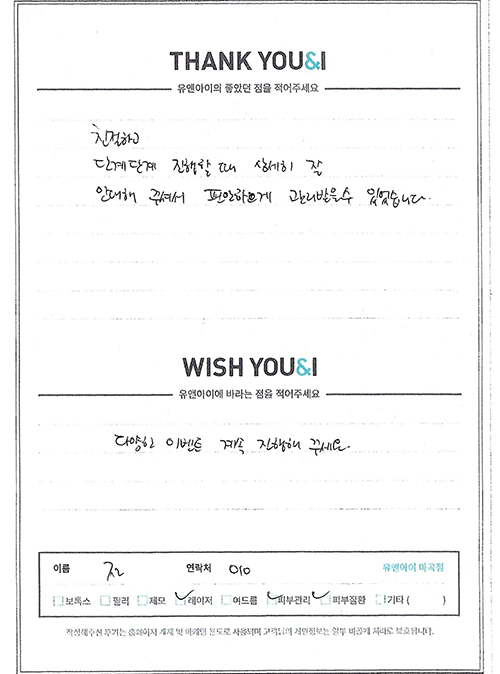 THANK YOU&I
유앤아이의 좋았던 점을 적어주세요
친절하고
단계단계 진행할 때 상세히 잘
안내해 주셔서 편안하게 관리받을수 있었습니다.
WISH YOU&I
유앤아이에 바라는 점을 적어주세요
다양한 이벤트 계속 진행해 주세요.
이름 연락처 010 유앤아이 마곡점
보톡스 필러 제모 레이저 여드름 피부관리 피부질환 기타 ( )
작성해주신 후기는 홈페이지 게재 및 마케팅 용도로 사용되며 고객님의 개인정보는 일부 비공개 처리로 보호됩니다.